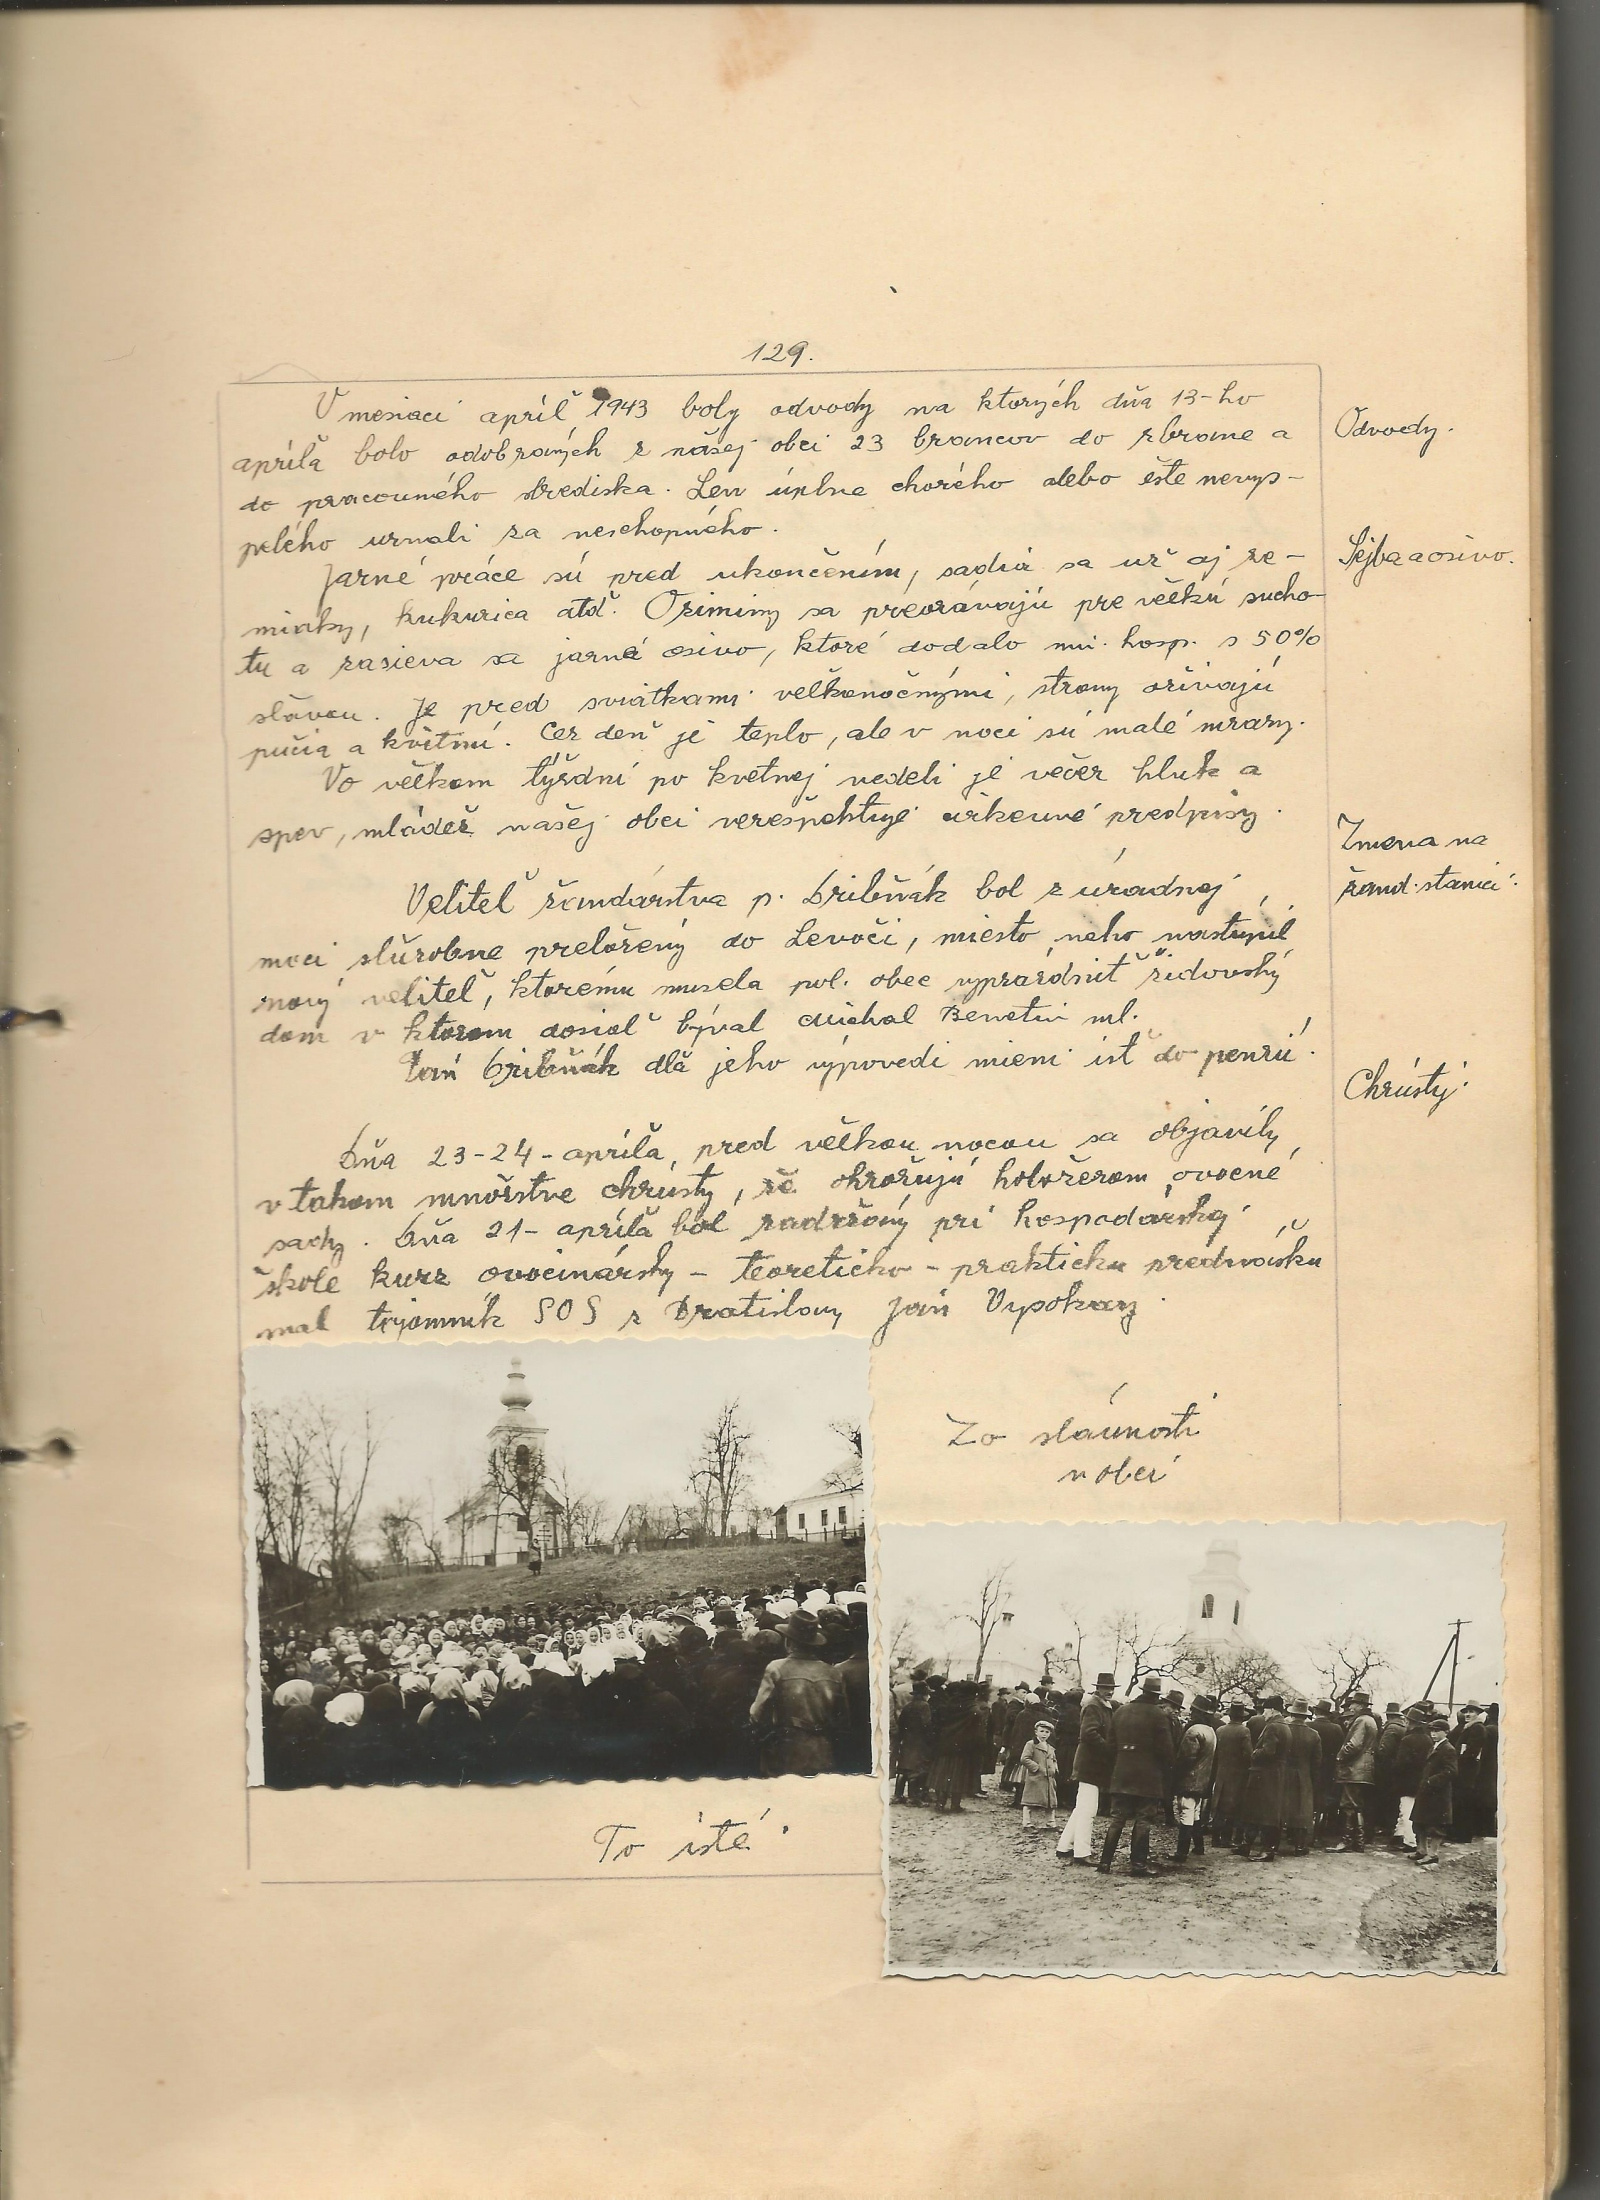 129.
V mesiaci apríl 1943 boly odvody na ktorých dňa 13-ho
Odvody.
apríla bolo odobraných z našej obci 23 brancov do zbrane a
do pracovného strediska. Len úplne chorého alebo ešte nevys-
pelého uznali za neschopného.
Jarné práce sú pred ukončením, sadia sa už aj ze-
Sejba a osivo.
miaky, kukurica atď. Oziminy sa preorávajú pre veľkú sucho-
tu a zasieva sa jarné osivo, ktoré dodalo min. hosp. s 50%
slávou. Je pred sviatkami veľkonočnými, stromy ožívajú
pučia a kvitnú. Cez deň je teplo, ale v noci sú malé mrazy.
Vo veľkom týždni po kvetnej nedeli je večer hluk a
spev, mládež našej obci nerešpektuje cirkevné predpisy.
Zmena na
žand. stanici.
Veliteľ žandárstva p. Dribňák bol z úradnej
moci služobne preložený do Levoči, miesto neho nastúpil
nový veliteľ, ktorému musela pol. obec vyprázdniť židovský
dom v ktorom dosiaľ býval Michal Benetin ml.
Ján Dribňák dľa jeho výpovedi mieni ísť do penzií.
Chrústy.
Dňa 23-24-apríla, pred veľkou nocou sa objavily
v takom množstve chrústy, že ohrožujú holožerom ovocné
sady. Dňa 21-apríla bol zadržaný pri hospodárskej
škole kurz ovocinársky - teoreticko - prakticku prednášku
mal tajomník SOS z Bratislavy Ján Vysokaz.
Zo slávnosti
v obci
To isté